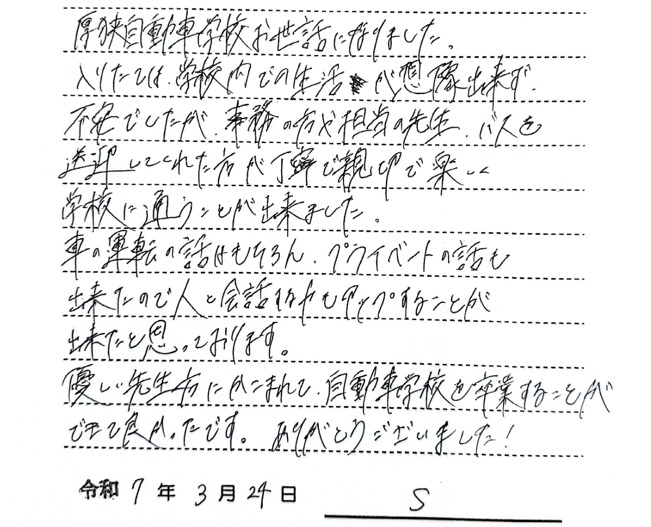 厚狭自動車学校お世話になりました。
入りたては、学校内での生活が想像出来ず、
不安でしたが、事務の方や担当の先生、バスを
送迎してくれた方が丁寧で親切で楽しく
学校に通うことが出来ました。
車の運転の話はもちろん、プライベートの話も
出来たので人と会話する力もアップすることが
出来たと思っております。
優しい先生方にかこまれて、自動車学校を卒業することが
できて良かったです。ありがとうございました！
令和 7 年 3 月 24 日 S